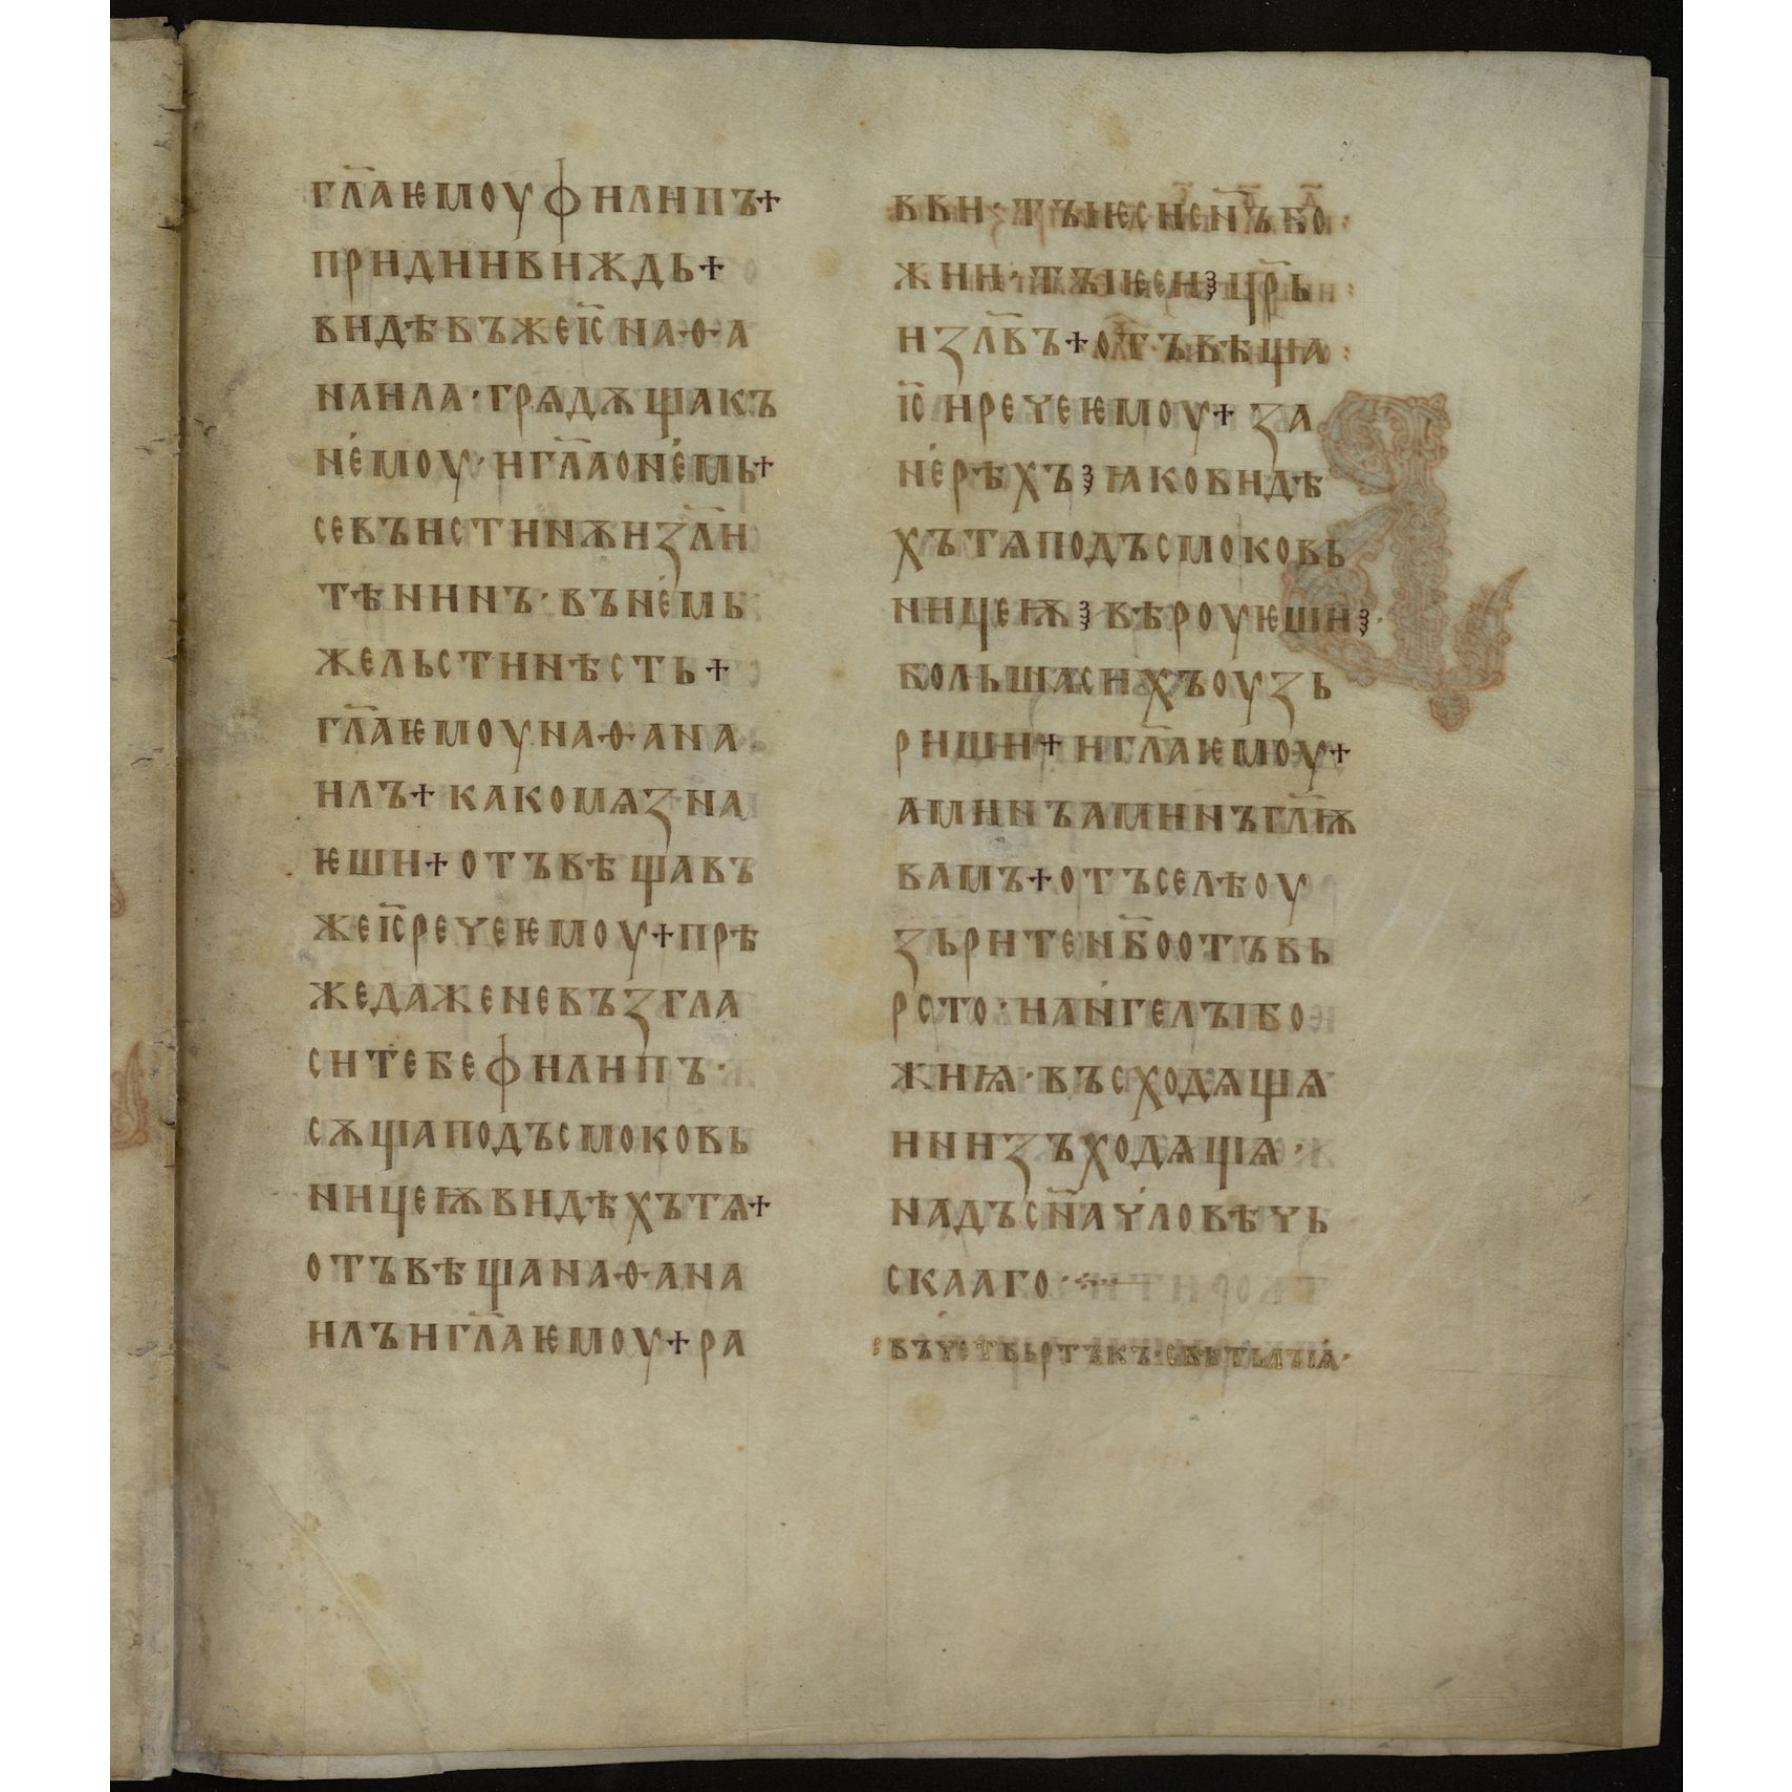 гл҃аѥмоуфилипъ+
придиивиждь+
видѣвъжеіс҃наѳа
наила·грѧдѫщакъ
н҄емоу·игл҃аон҄емь+
севъистинѫизл҃и
тѣнинъ·вън҄емь
жельстинѣсть+
гл҃аѥмоунаѳана
илъ+какомѧзна
ѥши+отъвѣщавъ
жеіс҃речеѥмоу+прѣ
жедаженевъзгла
ситебефилипъ·
сѫщаподъсмоковь
ницеѭвидѣхътѧ+
отъвѣщанаѳана
илъигл҃аѥмоу+ра
вви·тꙑѥсисн҃ъбо
жии·тꙑѥси⁊цр҃ь
изл҃въ+отъвѣща
іс҃иречеѥмоу+за
н҄ерѣхъ⁊ꙗковидѣ
хътѧподъсмоковь
ницеѭ⁊вѣроуѥши⁊
большасихъоузь
риши+игл҃аѥмоу+
аминъаминъгл҃ѭ
вамъ+отъселѣоу
зьритен҃боотъвь
рсто·иан҄гелꙑбо
жиѩ·въсходѧщѧ
иизъходѧщѧ·
надъсн҃ачловѣчь
скааго·
въчетвьртъкъ·свѣтьлꙑѩ·